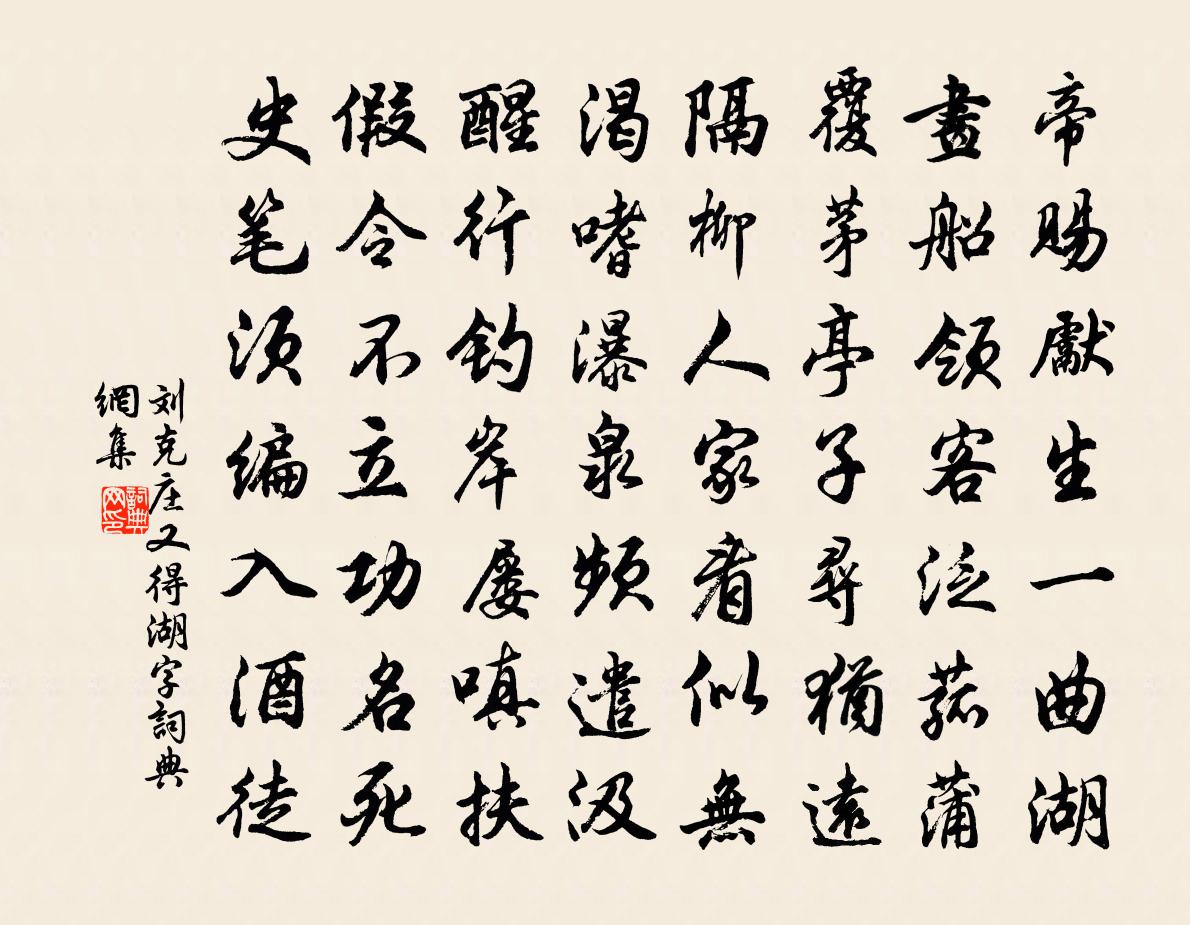 帝賜獻生一曲湖
畫船領客泛菰蒲
覆茅亭子尋猶遠
隔柳人家看似無
渴嗜瀑泉頻遣汲
醒行釣岸屡嗔扶
假令不立功名死
史笔须编入酒徒
刘克庄又得湖字詞典
網集
詞典
网印